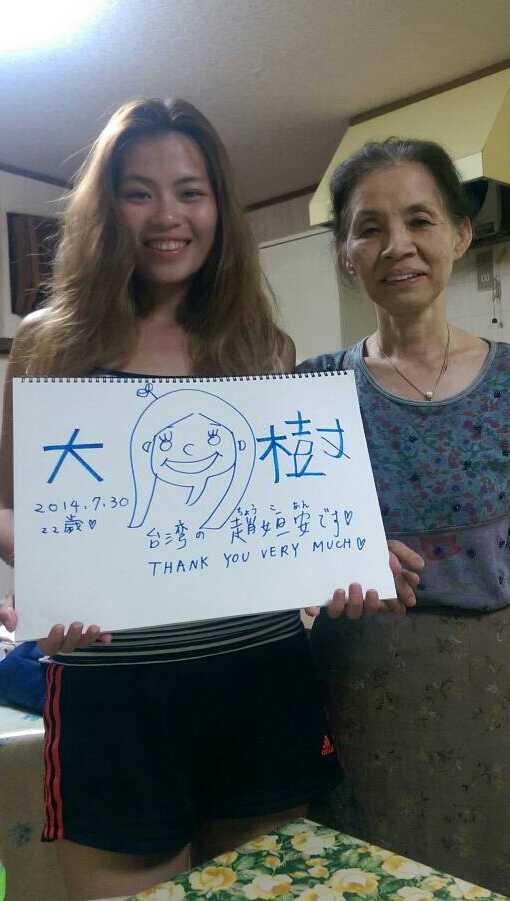 大樹
2014.7.30
22歳♡
ちょう こ あん
台湾の 趙姮安です♡
THANK YOU VERY MUCH♡
adidas